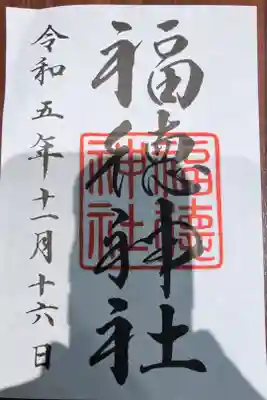 福徳神社
福徳神社
令和五年十一月十六日